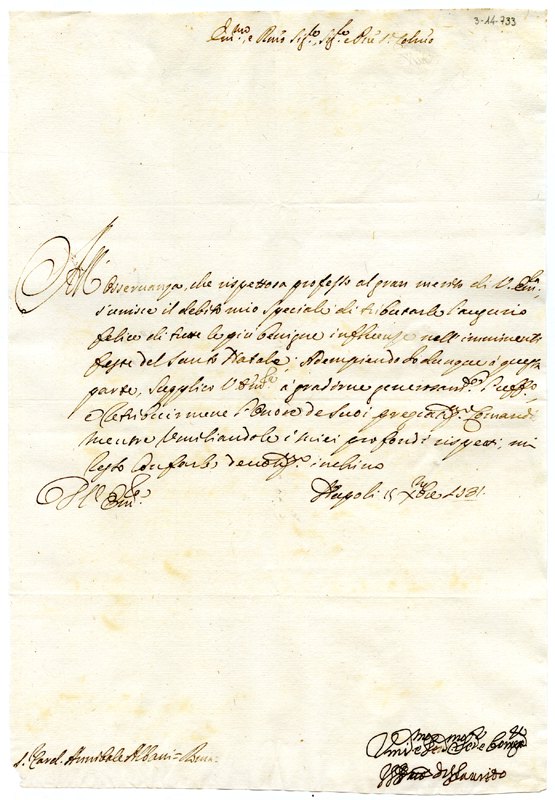 3-14-733
Em.mo, e Rmo Sig.re, Sig.re e Pne
All'osservanza, che rispettosa professo al gran merito di V. Em.
s'unisce il debito mio speciale di tributarle l'augurio
felice di tutte le più benigne influenze nell'imminenti
feste del Santo Natale; Adempiendolo dunque a questa
parte, supplico V. Em.za a gradirne generosam.te l'uff.o
e retribuirmene l'onore de suoi pregiatis.mi comandi
mentre umiliandole i miei profondi rispetti, mi
resto con farle devotis.mo inchino
Di V. Em.za
Napoli 15 Xbre 1731.
S. Card. Annibale Albani = Roma =
di Laurito